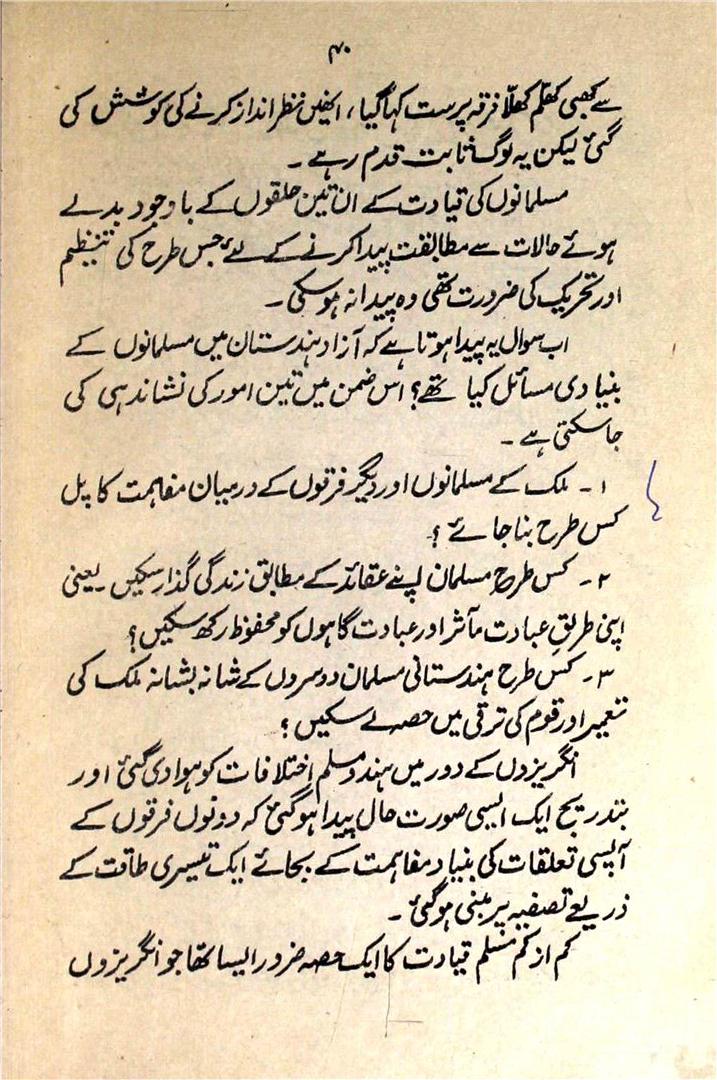 ۴۰
سے کبھی کھلّم کھلّا فرقہ پرست کہا گیا، انھیں نظر انداز کرنے کی کوشش کی
گئی لیکن یہ لوگ ثابت قدم رہے۔
مسلمانوں کی قیادت کے ان تین حلقوں کے باوجود بدلے
ہوئے حالات سے مطابقت پیدا کرنے کے لئے جس طرح کی تنظیم
اور تحریک کی ضرورت تھی وہ پیدا نہ ہو سکی۔
اب سوال یہ پیدا ہوتا ہے کہ آزاد ہندستان میں مسلمانوں کے
بنیادی مسائل کیا تھے؟ اس ضمن میں تین امور کی نشاندہی کی
جا سکتی ہے۔
۱۔ ملک کے مسلمانوں اور دیگر فرقوں کے درمیان مفاہمت کا پل
کس طرح بنا جائے؟
۲۔ کس طرح مسلمان اپنے عقائد کے مطابق زندگی گذار سکیں۔ یعنی
اپنی طریقِ عبادت مآثر اور عبادت گاہوں کو محفوظ رکھ سکیں؟
۳۔ کس طرح ہندستانی مسلمان دوسروں کے شانہ بشانہ ملک کی
تعمیر اور قوم کی ترقی میں حصہ لے سکیں؟
انگریزوں کے دور میں ہندو مسلم اختلافات کو ہوا دی گئی اور
بتدریج ایک ایسی صورت حال پیدا ہو گئی کہ دونوں فرقوں کے
آپسی تعلقات کی بنیاد مفاہمت کے بجائے ایک تیسری طاقت کے
ذریعے تصفیہ پر مبنی ہو گئی۔
کم از کم مسلم قیادت کا ایک حصہ ضرور ایسا تھا جو انگریزوں